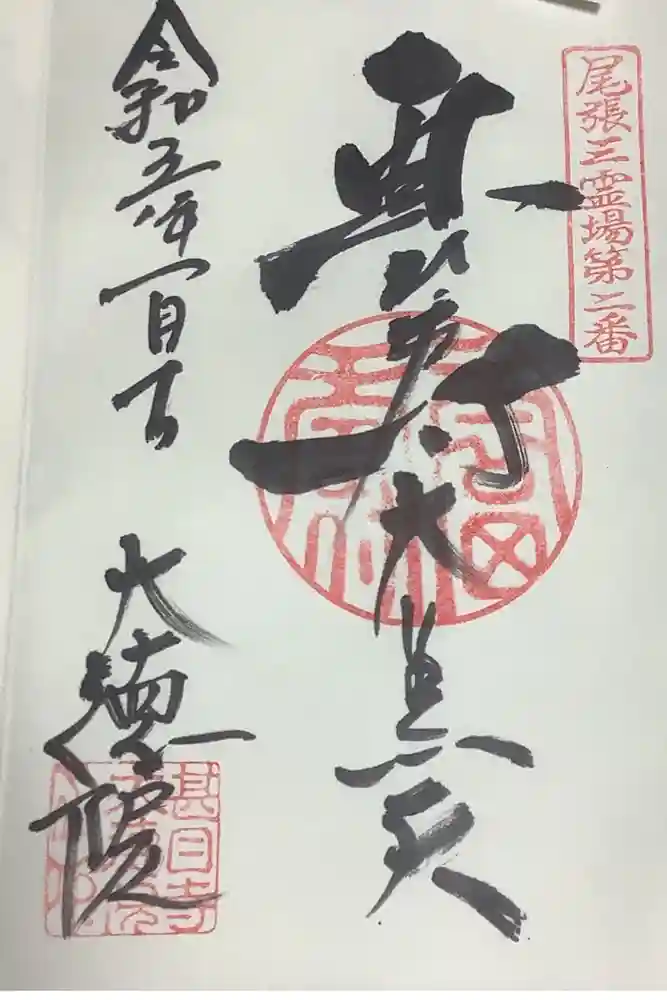 尾張三霊場第二番
恵比寿大黒天
令和五年一月
大徳院
甚目寺